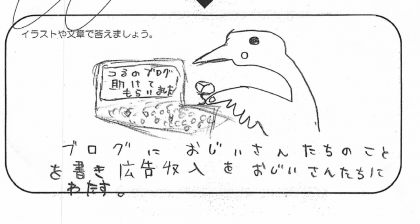 イラストや文章で答えましょう。
つるのブログ
助けて
もらいました
ブログに おじいさんたちのこと
を書き広告収入をおじいさんたちに
わたす。